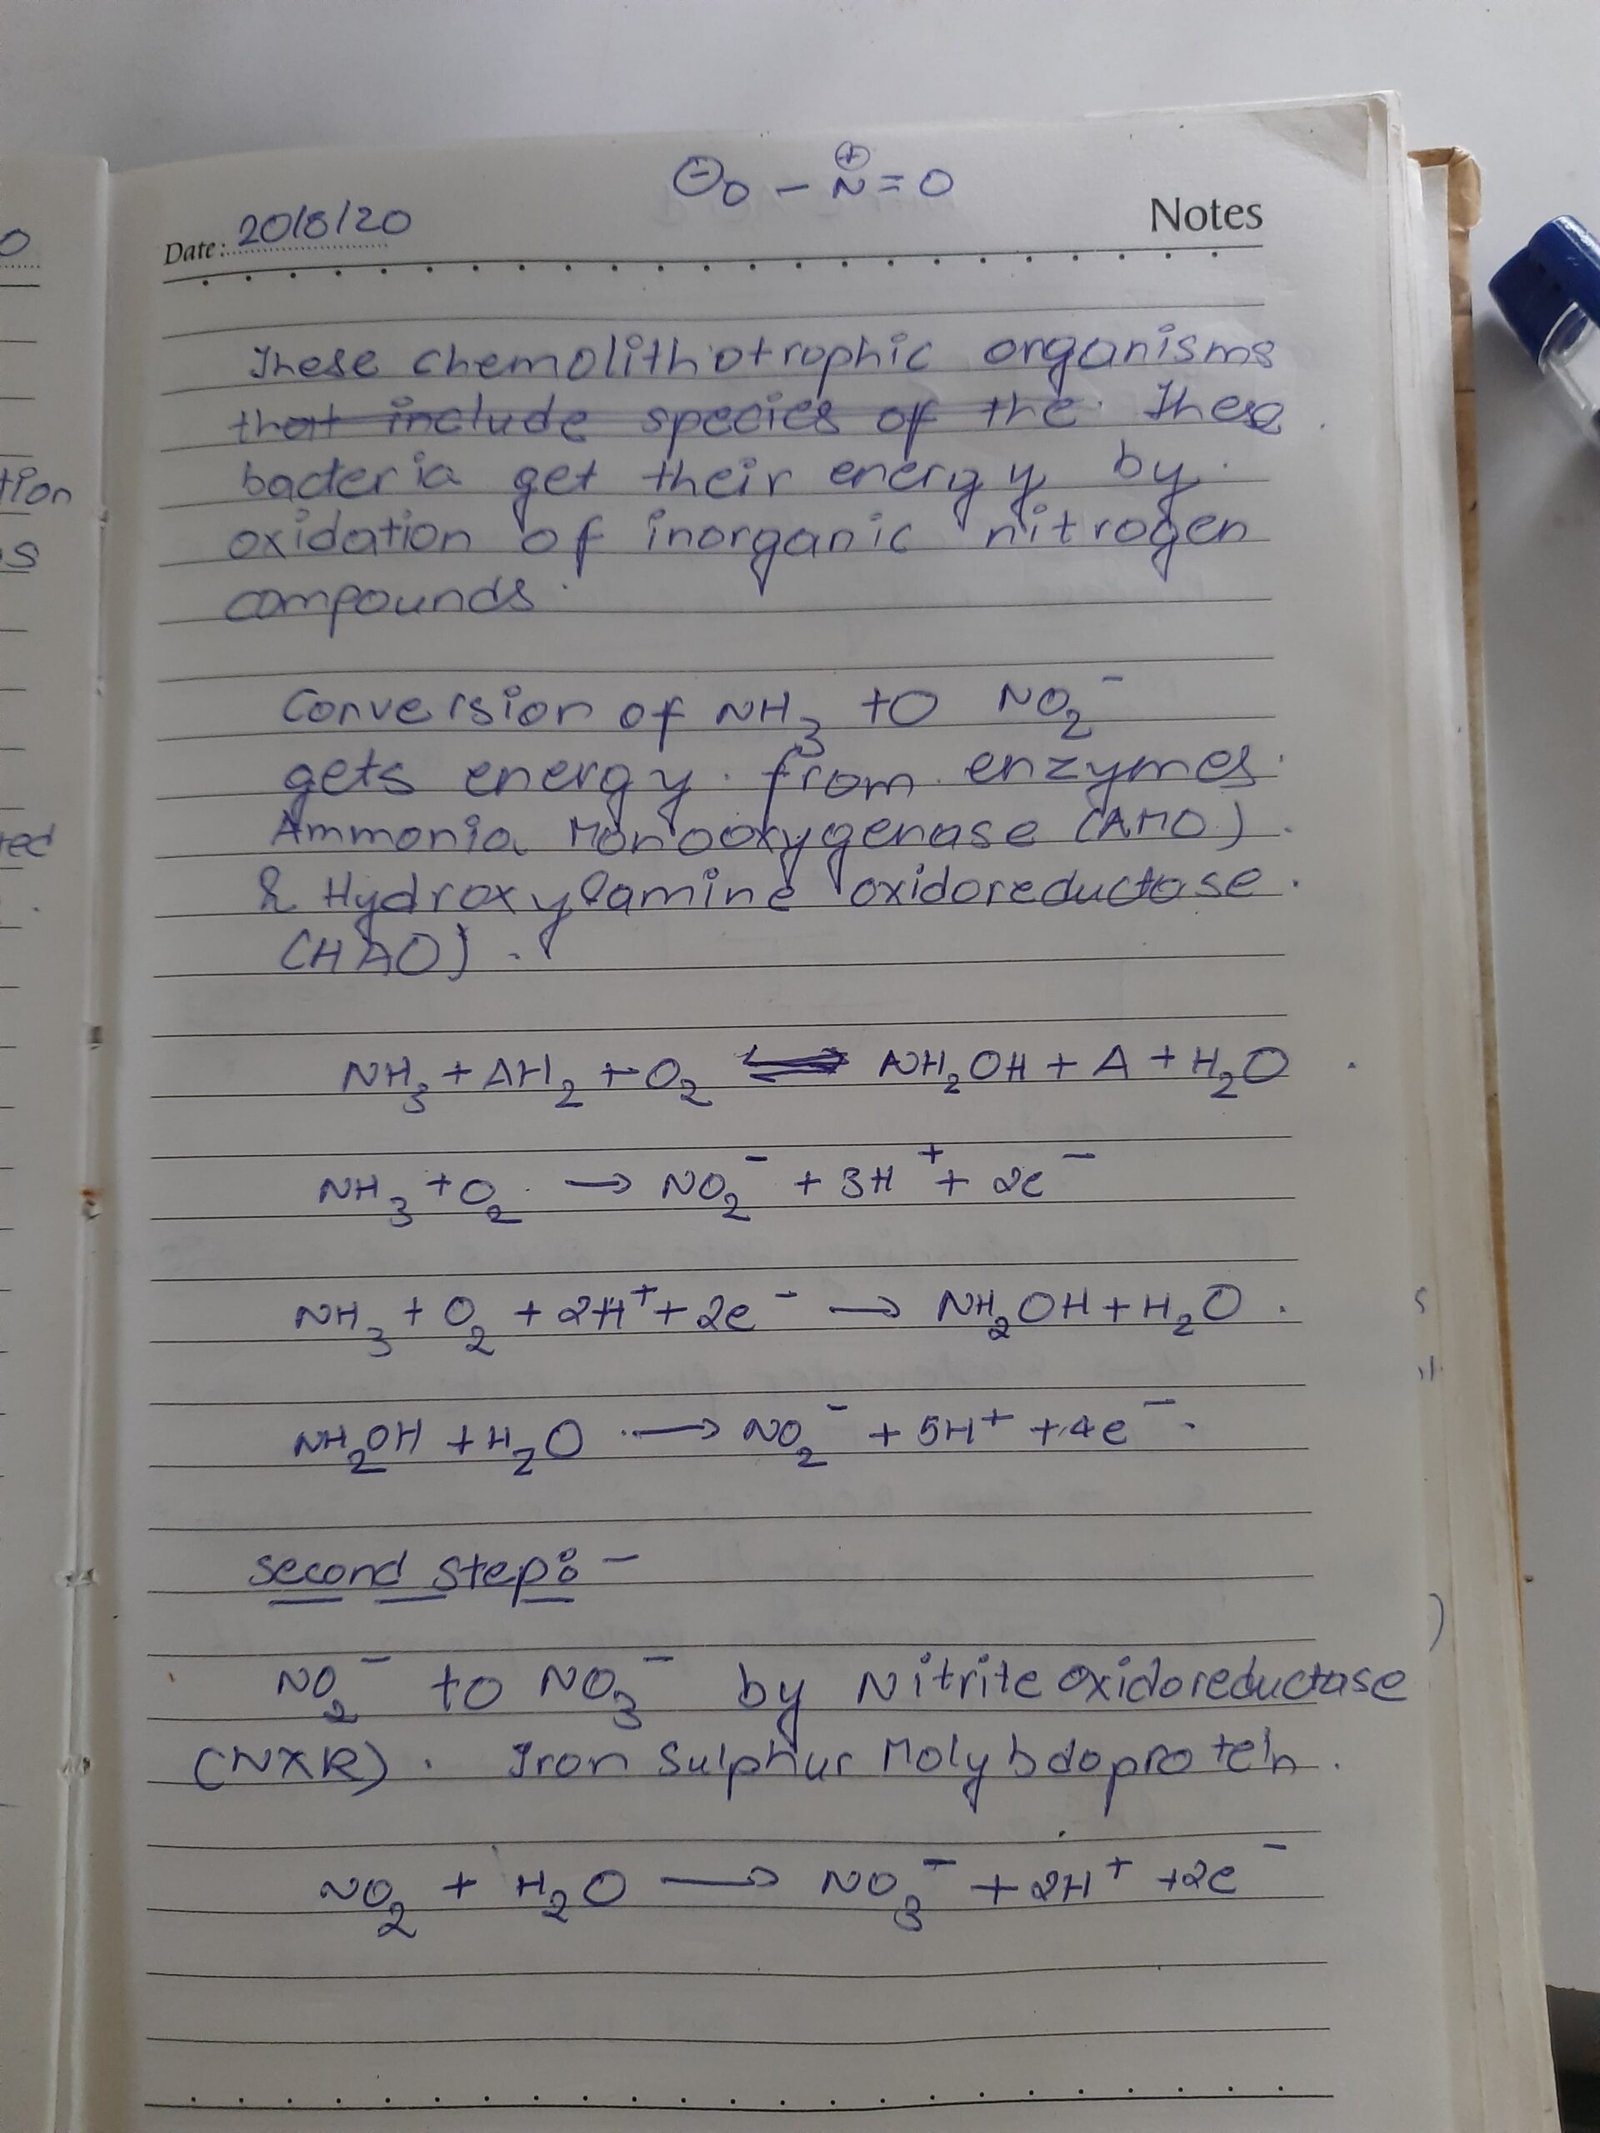 ⊖O - N⊕ = O
Date: 20/8/20
Notes
These chemolithotrophic organisms
that include species of the These
bacteria get their energy by
oxidation of inorganic nitrogen
compounds.
Conversion of NH₃ to NO₂⁻
gets energy from enzymes
Ammonia Monooxygenase (AMO)
& Hydroxylamine oxidoreductase
(HAO).
NH₃ + AH₂ + O₂ ⇌ NH₂OH + A + H₂O
NH₃ + O₂ → NO₂⁻ + 3H⁺ + 2e⁻
NH₃ + O₂ + 2H⁺ + 2e⁻ → NH₂OH + H₂O.
NH₂OH + H₂O → NO₂⁻ + 5H⁺ + 4e⁻.
second step:-
NO₂⁻ to NO₃⁻ by Nitrite oxidoreductase
(NXR). Iron Sulphur Molybdoprotein.
NO₂ + H₂O → NO₃⁻ + 2H⁺ + 2e⁻